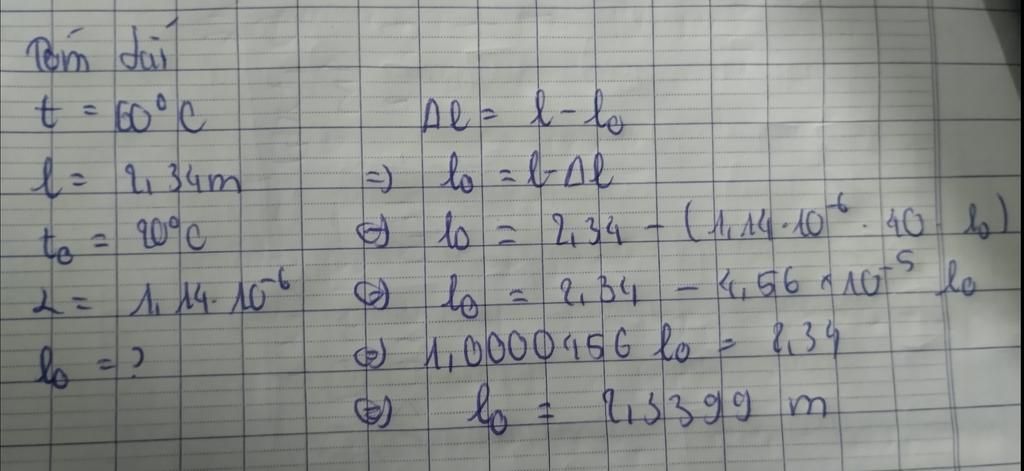 Tóm tắt
t = 60°C
l = 2,34m
t₀ = 20°C
α = 1,14.10⁻⁶
l₀ = ?
Δl = l - l₀
=> l₀ = l - Δl
<=> l₀ = 2,34 - (1,14.10⁻⁶ . 40 l₀)
<=> l₀ = 2,34 - 4,56 × 10⁻⁵ l₀
<=> 1,0000456 l₀ = 2,34
<=> l₀ = 2,3399 m